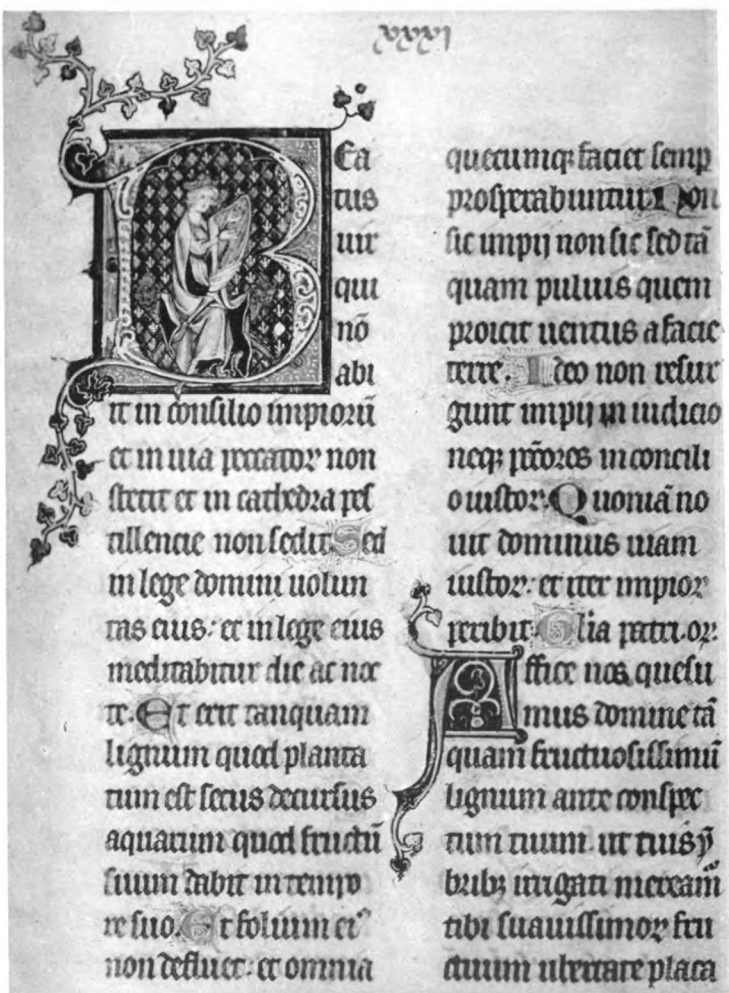 xxxi
Bea
tus
uir
qui
nō
abi
it in consilio impiorū
et in uia peccatoꝝ non
stetit et in cathedra pes
tillencie non sedit. Sed
in lege domini uolun
tas eius: et in lege eius
meditabitur die ac noc
te. Et erit tanquam
lignum quod planta
tum est secus decursus
aquarum quod fructū
suum dabit in tempo
re suo. Et folium eiꝰ
non defluet: et omnia
quecumqꝫ faciet semp
prosperabuntur. Non
sic impij non sic sed tā
quam puluis quem
proicit uentus a facie
terre. Ideo non resur
gunt impij in iudicio
neqꝫ pc̄cores in concili
o iustoꝝ. Quoniā no
uit dominus uiam
iustoꝝ: et iter impioꝝ
peribit. Glia patri. oꝝ.
Affice nos quesu
mus domine tā
quam fructuosissimū
lignum ante conspec
tum tuum. ut tuis ẏ
bribꝫ irrigati meream̄
tibi suauissimoꝝ fru
ctuum ubertate placa